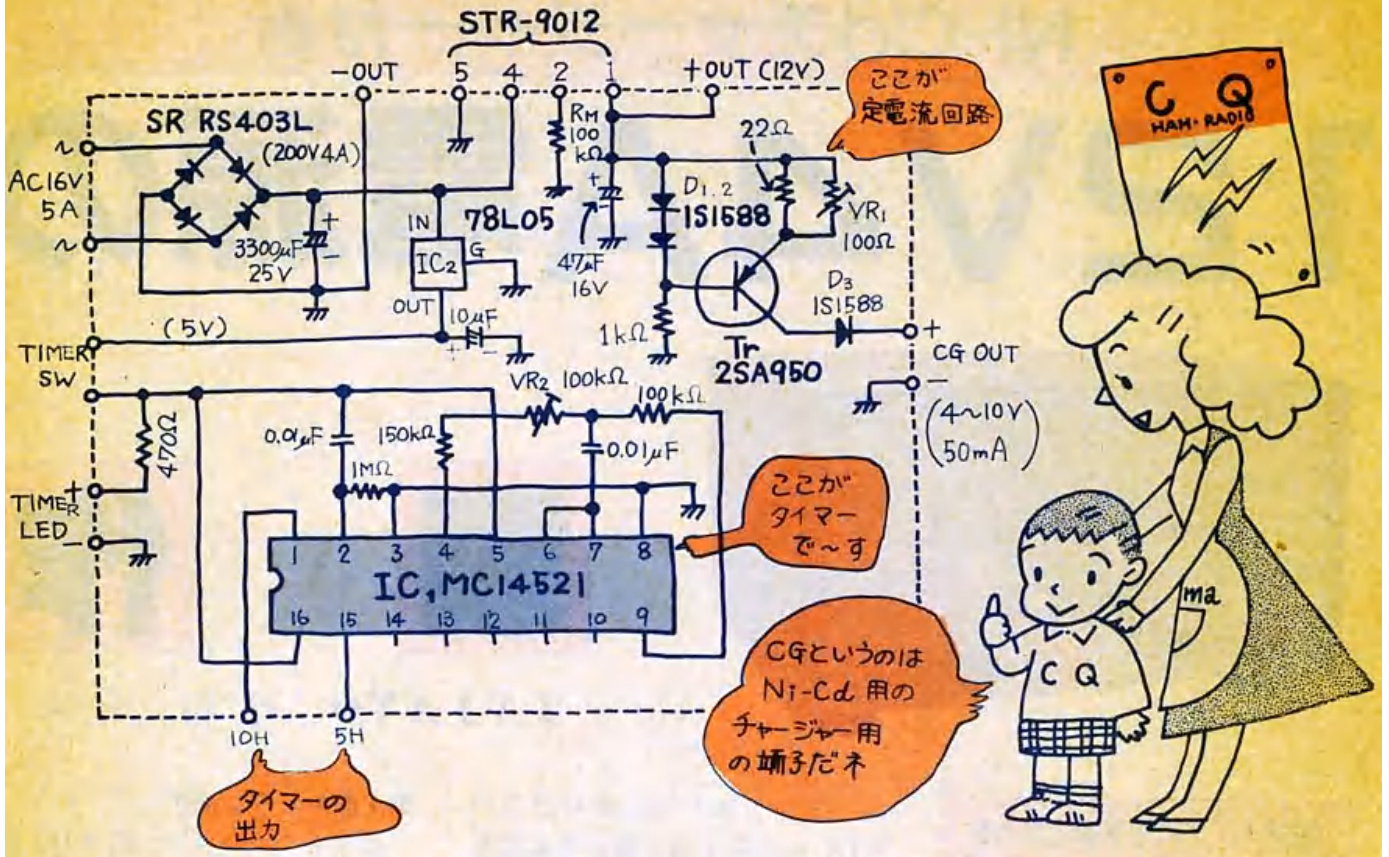 STR-9012
-OUT
5
4
2
1
+OUT (12V)
ここが
定電流回路
SR RS403L
(200V4A)
AC16V
5A
3300μF
25V
+
-
IN
78L05
G
IC2
OUT
10μF
+
-
RM
100
kΩ
+
47μF
16V
D1,2
1S1588
22Ω
VR1
100Ω
1kΩ
Tr
2SA950
D3
1S1588
+
CG OUT
-
(4~10V)
50mA
(5V)
TIMER
SW
470Ω
TIMER
LED
+
-
0.01μF
1MΩ
150kΩ
VR2 100kΩ
100kΩ
0.01μF
ここが
タイマー
で〜す
1 2 3 4 5 6 7 8
IC1 MC14521
16 15 14 13 12 11 10 9
10H
5H
タイマーの
出力
CGというのは
Ni-Cd用の
チャージャー用
の端子だネ
CQ
HAM-RADIO
ma
CQ